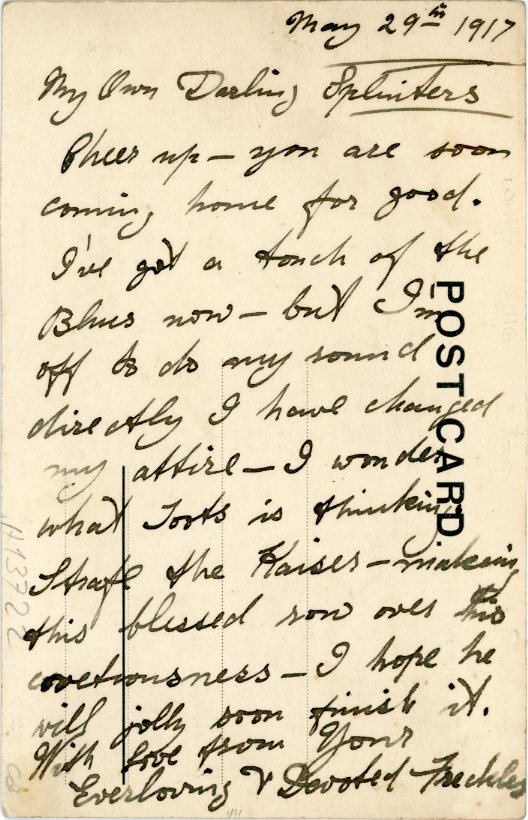 May 29th 1917
My Own Darling Splinters
Cheer up – you are soon
coming home for good.
I've got a touch of the
Blues now – but I'm
off to do my round
directly I have changed
my attire – I wonder
what Toots is thinking
Strafe the Kaiser – making
this blessed row over his
covetousness – I hope he
will jolly soon finish it.
With love from Your
Everloving & Devoted Freckles
POST CARD.
H13722